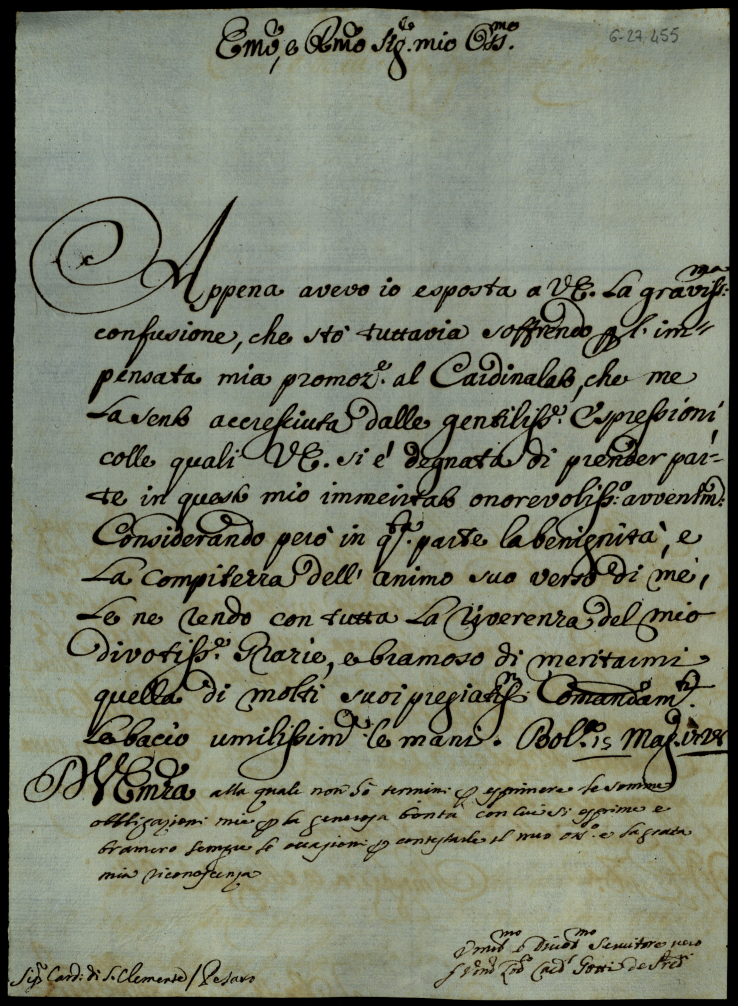 Emõ, e Rmõ Sig.re mio Oss.mo
6-27.455
Appena avevo io esposta a VE. la graviss:ma
confusione, che stò tuttavia soffrendo p l' im-
pensata mia promoz.e al Cardinalato, che me
la sento accresciuta dalle gentiliss.e Espressioni,
colle quali VE. si é degnata di prender par-
te in questo mio immeritato onorevoliss:o avvenim.
Considerando però in q.ta parte la benignità, e
la compitezza dell' animo suo verso di mé,
Le ne rendo con tutta la riverenza del mio
divotiss.o Grazie, e bramoso di meritarmi
quella di molti suoi pregiatiss.mi Comandam.ti
le bacio umilissim.te le mani. Bol.a 15 Mag.
D VEmza alla quale non hò termini p esprimere le somme
obbligazioni mie p la generosa bontà con cui si esprime e
bramero sempre le occasioni p contestarle il mio oss.o e la grata
mia riconoscenza
Umo e Divot.mo Servitore vero
Card. Gotti de Pred.
Sig.r Card: di S. Clemente / Pesaro